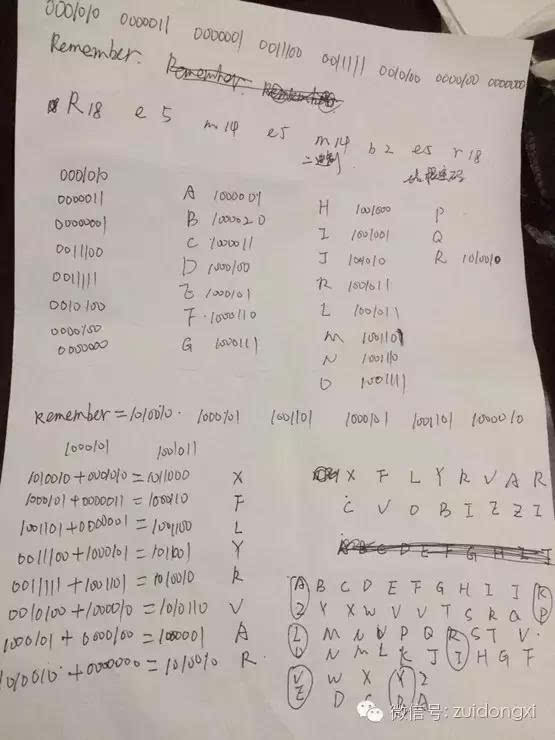 0001010 0000011 0000001 0011100 0011111 0010100 0000100 0000000
Remember.
R18 e5 m14 e5 m14 b2 e5 r18
二进制
0001010
0000011
0000001
0011100
0011111
0010100
0000100
0000000
A 1000001
B 1000020
C 1000011
D 1000100
E 1000101
F 1000110
G 1000111
H 1001000
I 1001001
J 1001010
K 1001011
L 1001011
M 1001101
N 1001110
O 1001111
P
Q
R 1010010
Remember = 1010010. 1000101 1001101 1000101 1001101 1000010
1000101 1001011
1010010 + 0001010 = 1011000 X
1000101 + 0000011 = 1000110 F
1001101 + 0000001 = 1001100 L
0011100 + 1000101 = 1011001 Y
0011111 + 1001101 = 1010010 R
0010100 + 1000010 = 1010110 V
1000101 + 0000100 = 1000001 A
1010010 + 0000000 = 1010010 R
X F L Y R V A R
C V O B I Z Z I
A B C D E F G H I J
A B C D E F G H I J K
Z Y X W V V T S R Q P
L M N U P Q R S T V
O N M L K J I H G F
V W X Y Z
E D C B A
微信号: zuidongxi